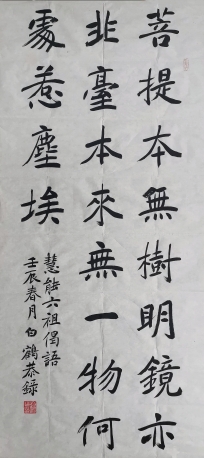 菩提本無樹明鏡亦
非臺本來無一物何
處惹塵埃
慧能六祖偈語
壬辰春月白鶴恭錄